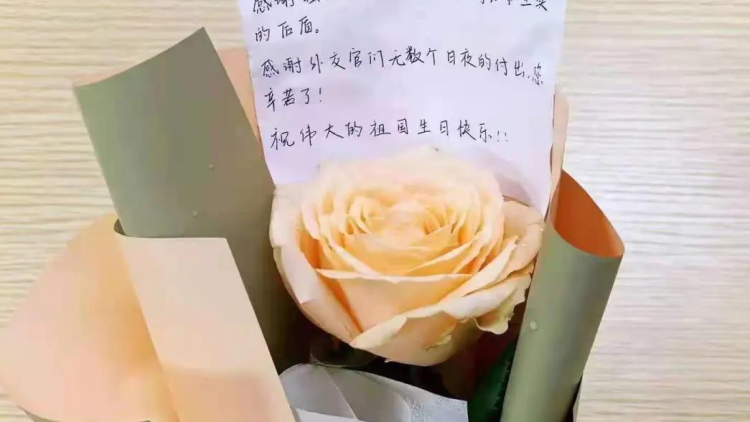 感谢
的后面。
感谢外交官们无数个日夜的付出,您
辛苦了!
祝伟大的祖国生日快乐!!